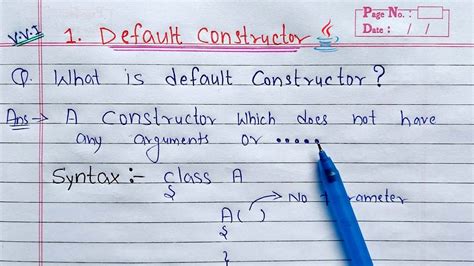 Page No. :
Date :    /    /
V.V.I
1. Default Constructor
Q. What is default Constructor?
Ans → A Constructor which does not have
any arguments or .....
Syntax :- class A
{
A( ) → No
{
}